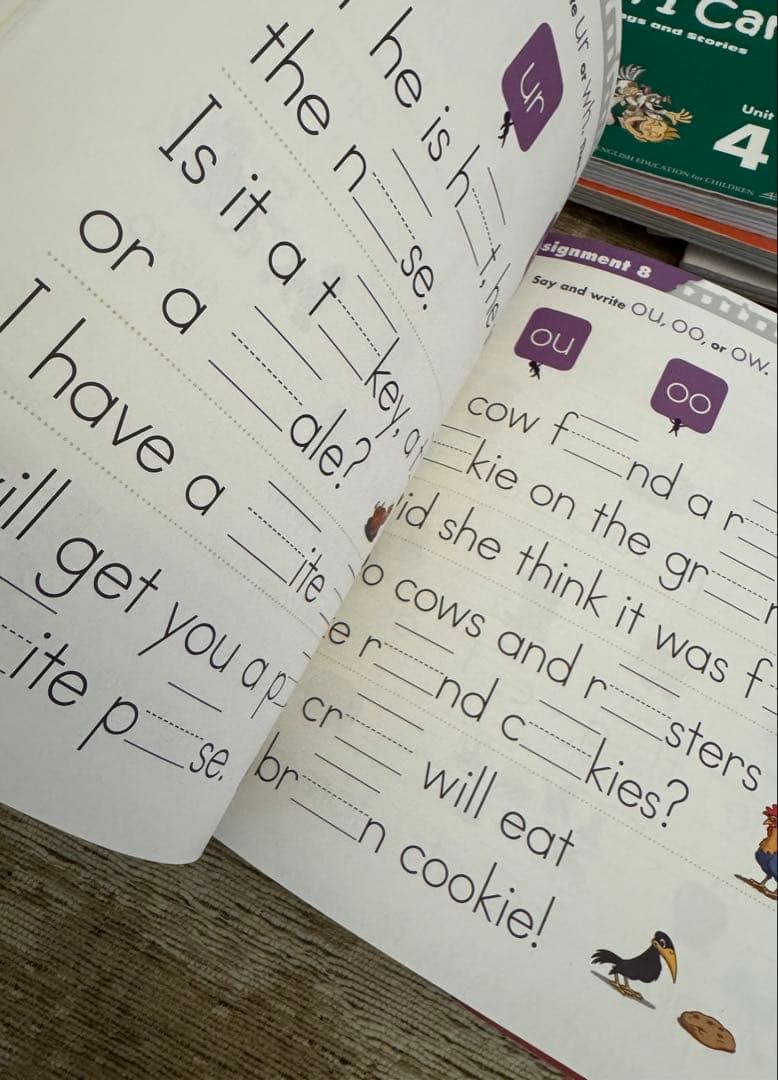 ur
ur or wh
he is h__t, he
the n__se.
Is it a t__key, a
or a __ale?
I have a __ite
ill get you a p
ite p__se.
Can
gs and Stories
Unit
4
ENGLISH EDUCATION for CHILDREN
signment 8
Say and write ou, oo, or ow.
ou
oo
cow f__nd a r
kie on the gr
id she think it was f
o cows and r__sters
e r__nd c__kies?
cr__ will eat
br__n cookie!